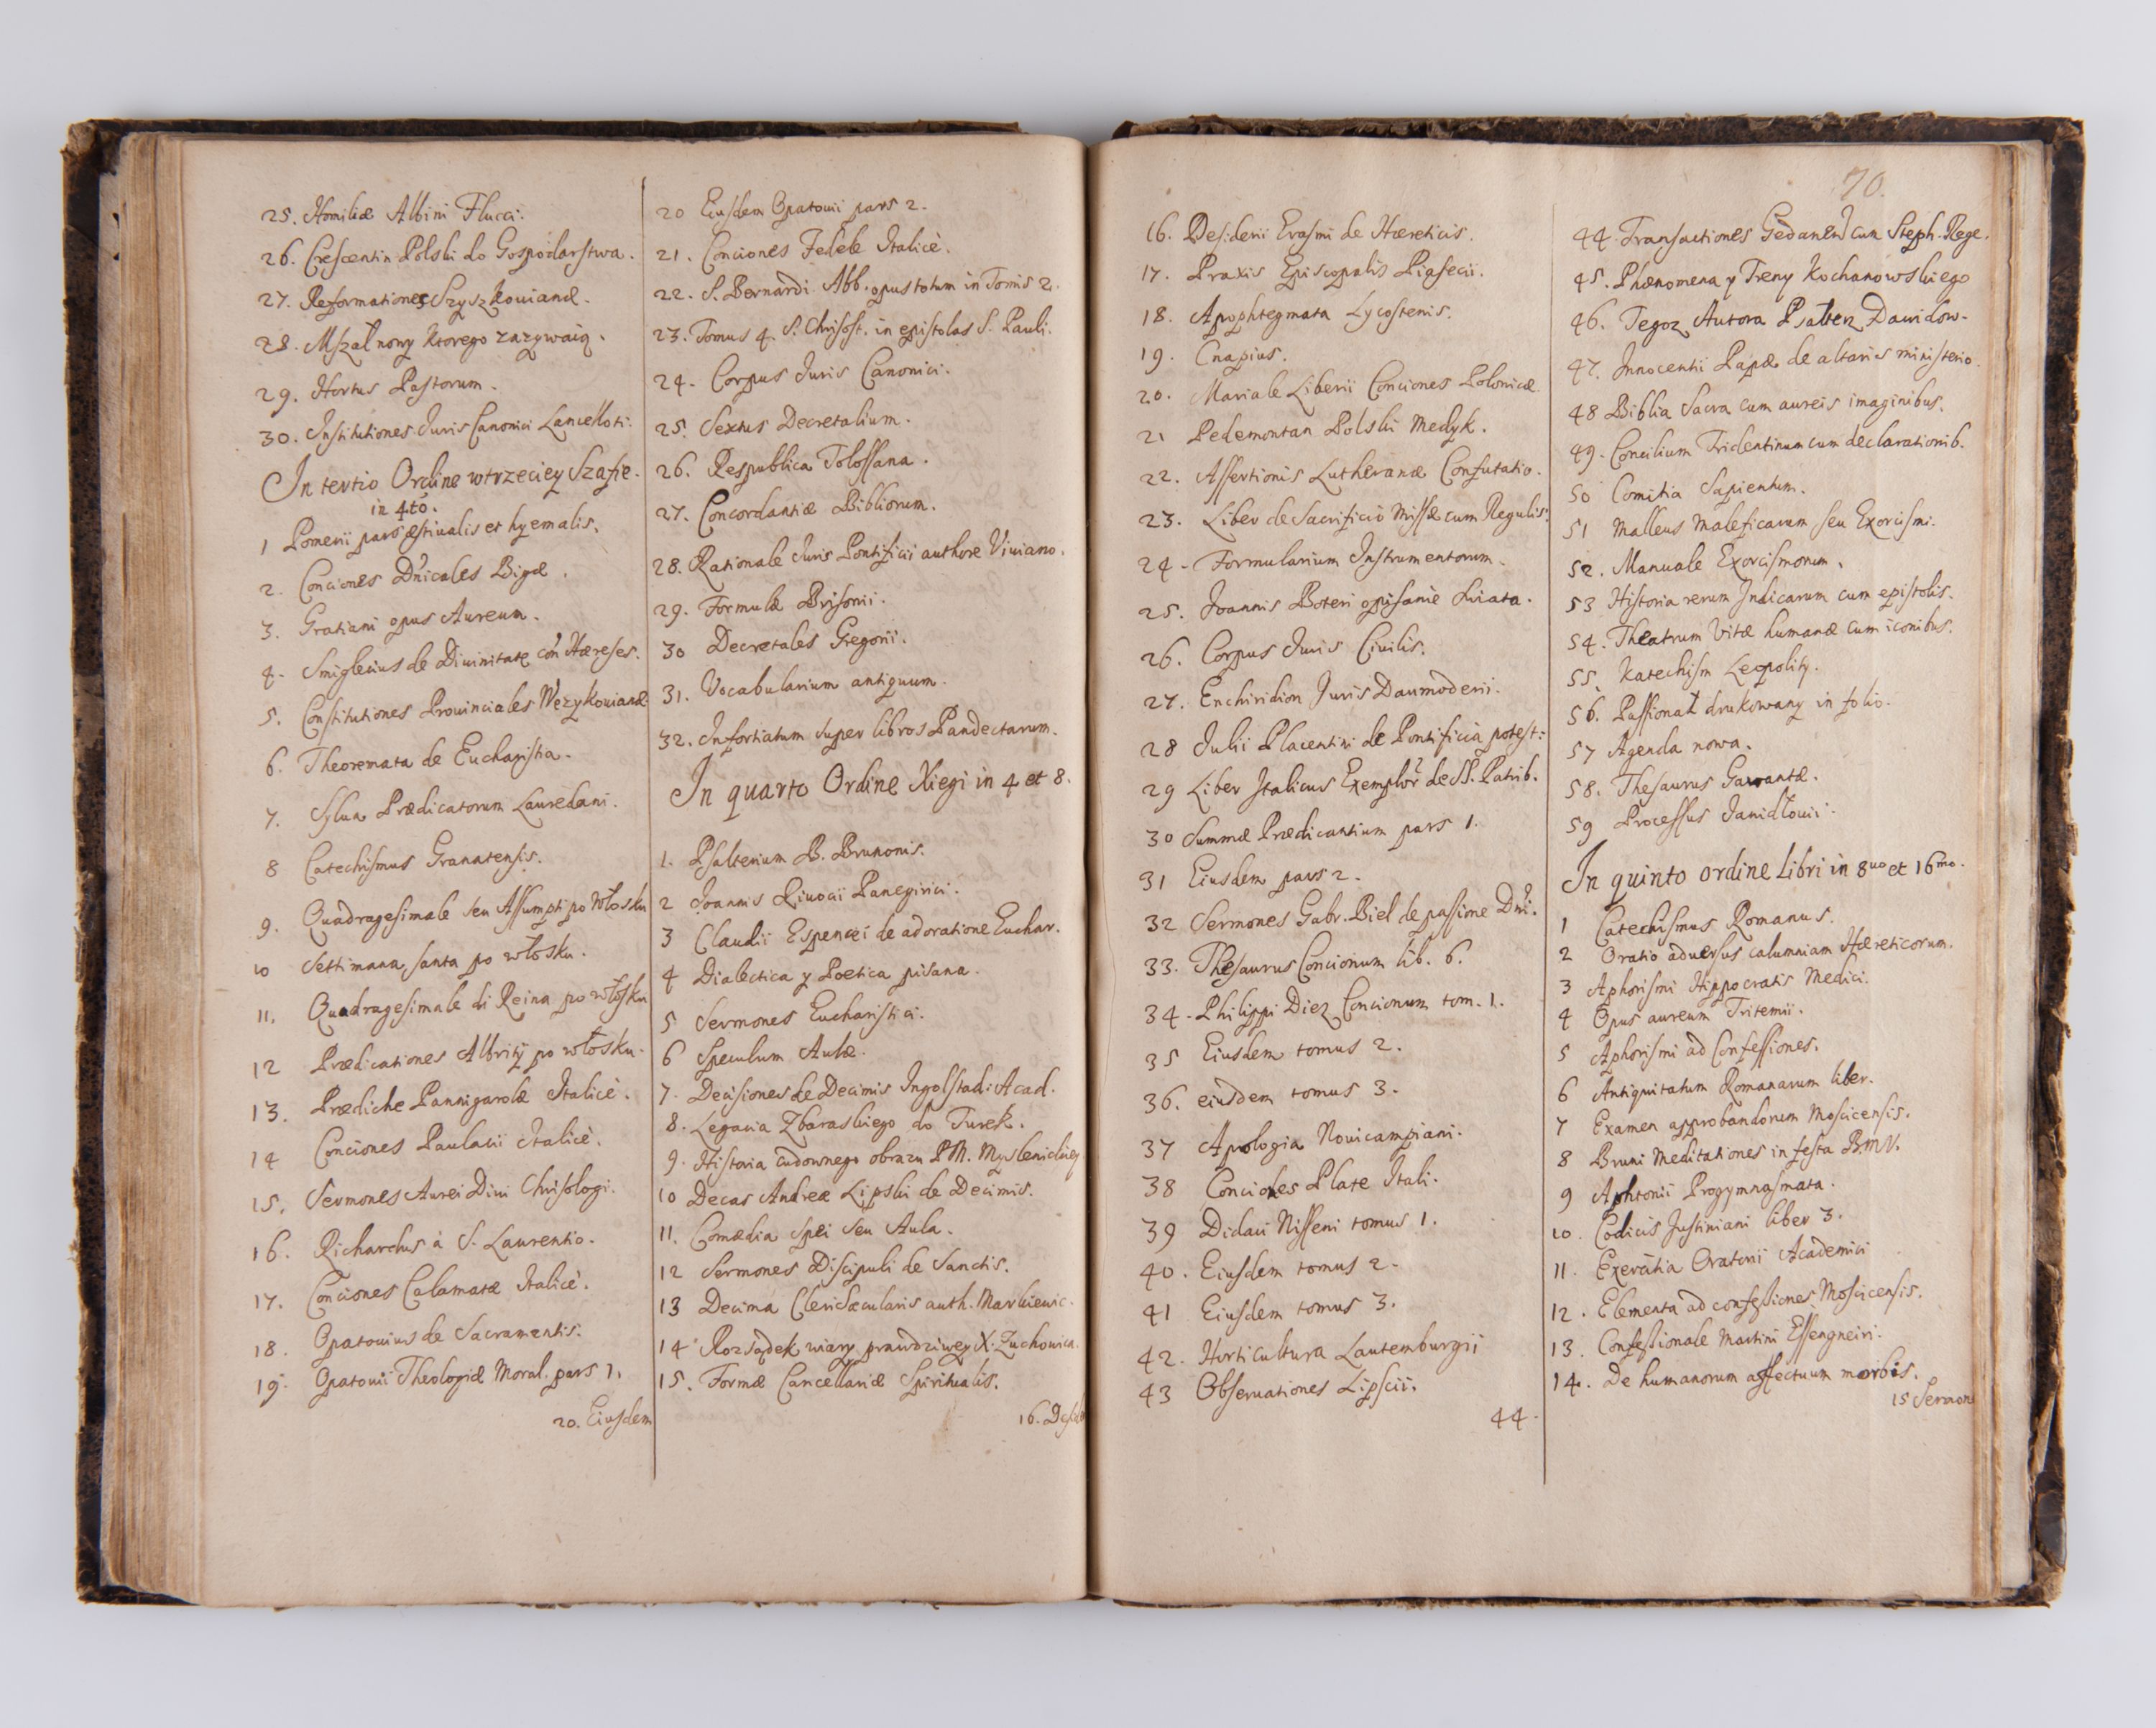 25. Homiliæ Albini Flucci:
26. Crescentin Polski do Gospodarstwa.
27. Reformationes Szyszkouianæ.
28. Mszał nowy ktorego zazywaią.
29. Hortus Pastorum.
30. Institutiones Juris Canonici Lancelloti:
In tertio Ordine w trzeciey Szafie.
in 4to.
1 Pomerii pars æstiualis et hyemalis.
2. Conciones Dnicales Bigæ.
3. Gratiani opus Aureum.
4. Smiglecius de Diuinitate con Hæreses.
5. Constitutiones Prouinciales Węzykouianæ
6. Theoremata de Eucharistia.
7. Sylua Prædicatorum Lauredani.
8 Catechismus Granatensis.
9. Quadragesimale seu Assumpti po Włosku
10 Settimana santa po włosku.
11. Quadragesimale di Reina po włosku
12 Prædicationes Albritÿ po włosku.
13. Prædiche Pannigarolæ Italicè.
14 Conciones Paulacii Italicè.
15. Sermones Aurei Diui Chrisologi.
16. Richardus à S. Laurentio.
17. Conciones Calamatæ Italicè.
18. Opatouius de Sacramentis.
19. Opatouii Theologiæ Moral. pars 1.
20. Eiusdem
20 Eiusdem Opatouii pars 2.
21. Conciones Fedele Italicè.
22. S. Bernardi Abb. opus totum in Tomis 2.
23. Tomus 4. S. Chrisost. in epistolas S. Pauli.
24. Corpus Juris Canonici.
25. Sextus Decretalium.
26. Respublica Tolossana.
27. Concordantiæ Bibliorum.
28. Rationale Juris Pontificii authore Viuiano.
29. Formulæ Brisonii.
30 Decretales Gregorii.
31. Vocabularium antiquum.
32. Infortiatum super libros Pandectarum.
In quarto Ordine Xiegi in 4 et 8.
1. Psalterium B. Brunonis.
2 Joannis Riuocii Panegirici.
3 Claudii Espencei de adoratione Euchar.
4 Dialectica y Poetica pisana.
5 Sermones Eucharistici.
6 Speculum Aulæ.
7. Decisiones de Decimis Ingolstad: Acad.
8. Legacia Zbaraskiego do Turek.
9. Historia cudownego obrazu PM. Myslenickiey
10 Decas Andreæ Lipski de Decimis.
11. Comædia Spei seu Aula.
12 Sermones Discipuli de Sanctis.
13 Decima Cleri Sæcularis auth. Markiewic.
14 Rozsądek wiary prawdziwey X. Zuchowica.
15. Formæ Cancellariæ Spiritualis.
16. Desider
16. Desiderii Erasmi de Hæreticis.
17. Praxis Episcopalis Piasecii.
18. Apophtegmata Lycostenis.
19. Cnapius.
20. Mariale Liberii Conciones Polonicæ
21 Pedemontan Polski Medyk.
22. Assertionis Lutheranæ Confutatio.
23. Liber de Sacrificio Missæ cum Regulis.
24. Formularium Instrumentorum.
25. Joannis Boteri opisanie swiata.
26. Corpus Juris Ciuilis.
27. Enchiridion Juris Daumoderii.
28 Julii Placentini de Pontificia potest:
29 Liber Italicus Exemplor de SS. Patrib.
30 Summæ Prædicantium pars 1.
31 Eiusdem pars 2.
32 Sermones Gabr. Biel de passione Dni.
33. Thesaurus Concionum lib. 6.
34. Philippi Diez Concionum tom. 1.
35 Eiusdem tomus 2.
36. eiusdem tomus 3.
37 Apologia Nouicampiani.
38 Conciones Plate Itali.
39 Didaci Nisseni tomus 1.
40. Eiusdem tomus 2.
41 Eiusdem tomus 3.
42. Horticultura Lautemburgii
43 Obseruationes Lipscii.
44.
70.
44. Transactiones Gedanen cum Steph. Rege.
45. Phænomena y Treny Kochanowskiego
46. Tegoz Autora Psałterz Dawidow.
47. Innocentii Papæ de altaris ministerio.
48 Biblia Sacra cum aureis imaginibus.
49. Concilium Tridentinum cum declarationib.
50 Comitia Sapientum.
51 Malleus Maleficarum seu Exorcismi.
52. Manuale Exorcismorum.
53 Historia rerum Indicarum cum epistolis.
54. Theatrum Vitæ humanæ cum iconibus.
55. Katechism Leopolity.
56. Passionał drukowany in folio.
57 Agenda nowa.
58. Thesaurus Gawantæ.
59 Processus Damidłouii.
In quinto ordine Libri in 8uo et 16mo.
1 Catechismus Romanus.
2 Oratio aduersus calumniam Hæreticorum.
3 Aphorismi Hippocratis Medici.
4 Opus aureum Tritemii.
5 Aphorismi ad Confessiones.
6 Antiquitatum Romanarum liber.
7 Examen approbandorum Moscicensis.
8 Bruni Meditationes in festa B.M.V.
9 Aphtonii Progymnasmata.
10. Codicis Justiniani liber 3.
11. Exercitia Oratorii Academici
12. Elementa ad confessiones Moscicensis.
13. Confessionale Martini Essengneiri.
14. De humanorum affectuum morbis.
15 Sermon